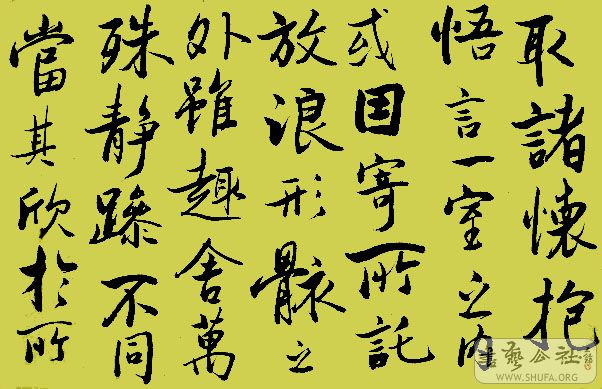 取諸懷抱
悟言一室之内
或因寄所託
放浪形骸之
外雖趣舍萬
殊静躁不同
當其欣於所
書藝公社
WWW.SHUFA.ORG